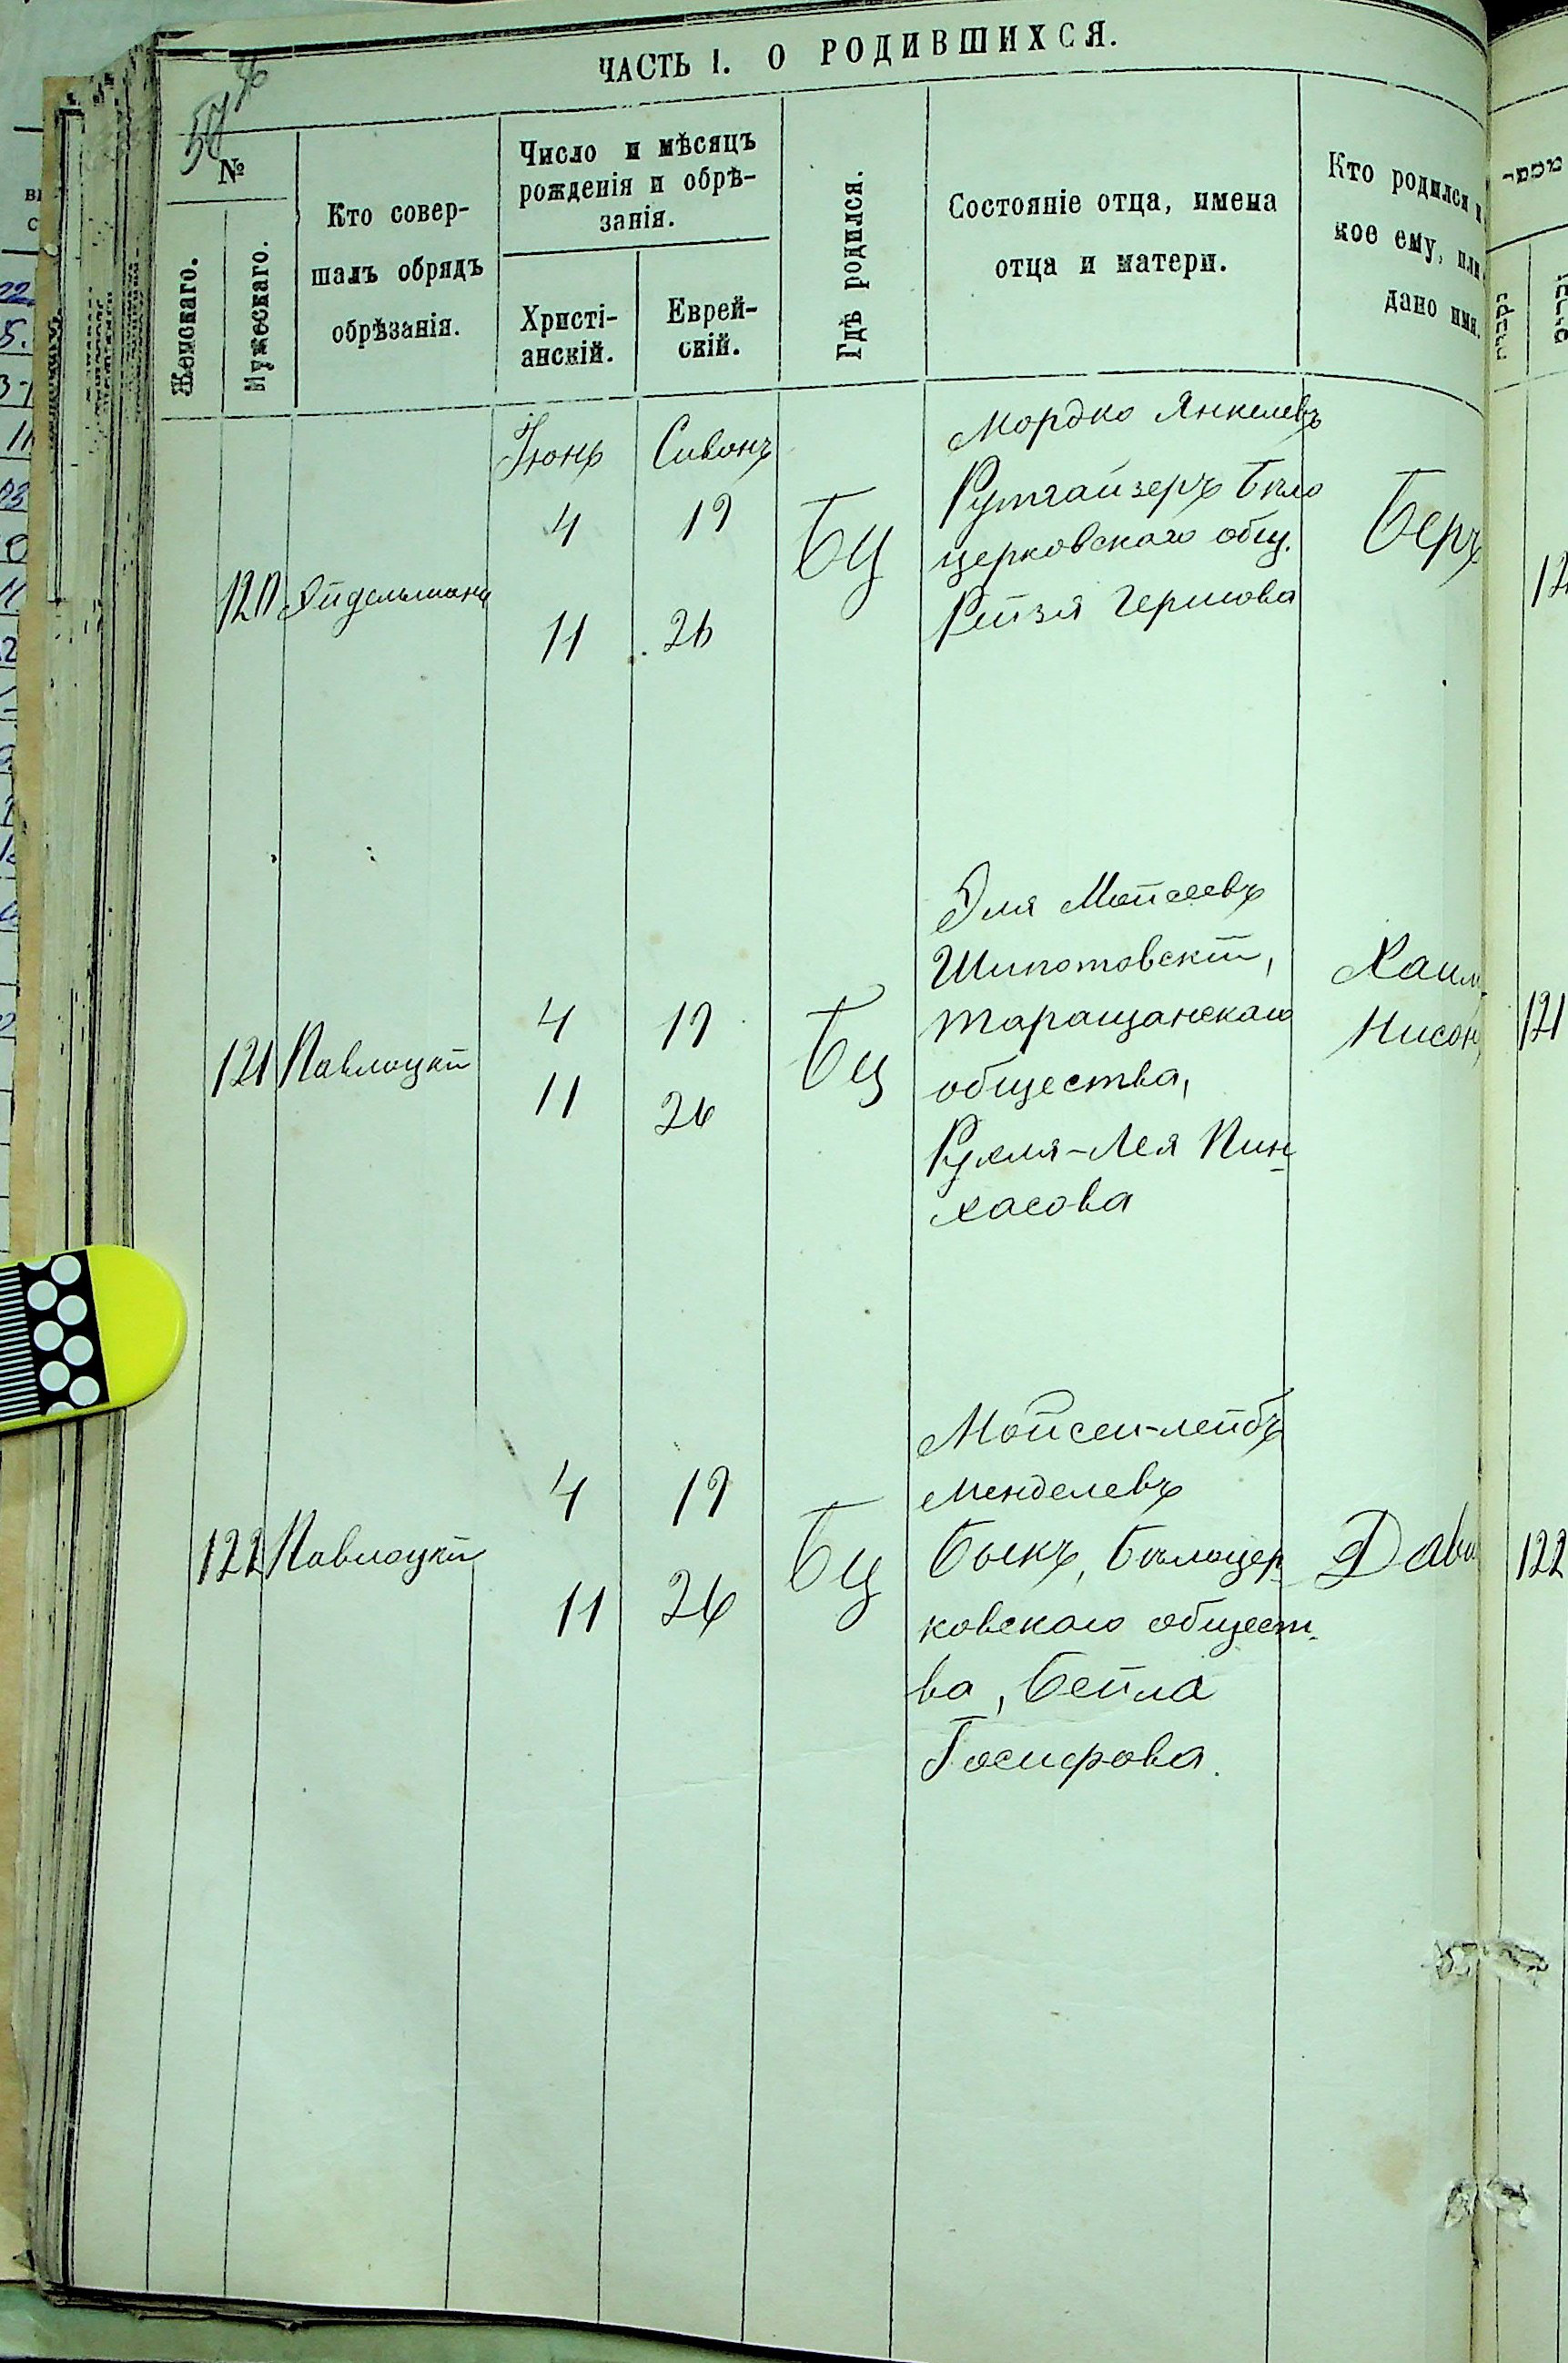 ЧАСТЬ I. О РОДИВШИХСЯ.
№
Женскаго.
Мужескаго.
Кто совер-
шалъ обрядъ
обрѣзанія.
Число и мѣсяцъ
рожденія и обрѣ-
занія.
Христі-
анскій.
Еврей-
скій.
Гдѣ родился.
Состояніе отца, имена
отца и матери.
Кто родился и
кое ему, или
дано имя.
Іюнь Сивонъ
120 Эйдельманъ
4 19
11 26
БЦ
Мордко Янкелевъ
Рутгайзеръ Бѣло
церковскаго общ.
Рейзя Гершова
Беръ
121 Павлоцкій
4 19
11 26
Бц
Эля Мойсеевъ
Шипотовскій,
таращанскаго
общества,
Рухля-Лея Пин-
хасова
Хаим
Нисон
121
122 Павлоцкій
4 19
11 26
Бц
Мойсей-лейбъ
Менделевъ
Быкъ, Бѣлоцер-
ковскаго общест-
ва, Бейла
Іосифова.
Дави
122